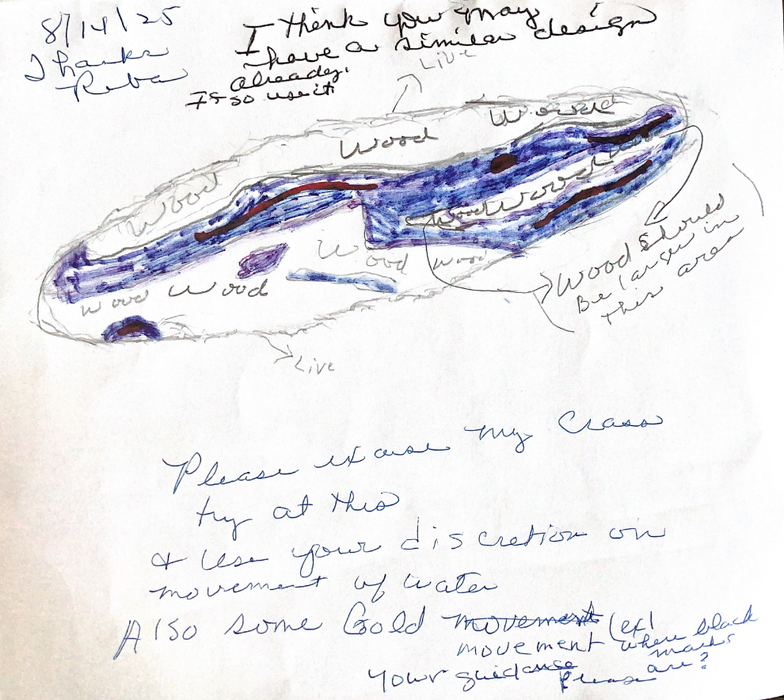 8/14/25
Thanks
Reba
I think you may
have a similar design
already.
If so use it.
Live
Wood
Wood
Wood
Wood
Wood
Wood
Wood
Wood
Wood
Wood should
Be larger in
this area
Live
Please excuse my Crass
try at this
& Use your discretion on
movement of water
Also some Gold movement (ex)
movement where black
marks
your guidance Please are?